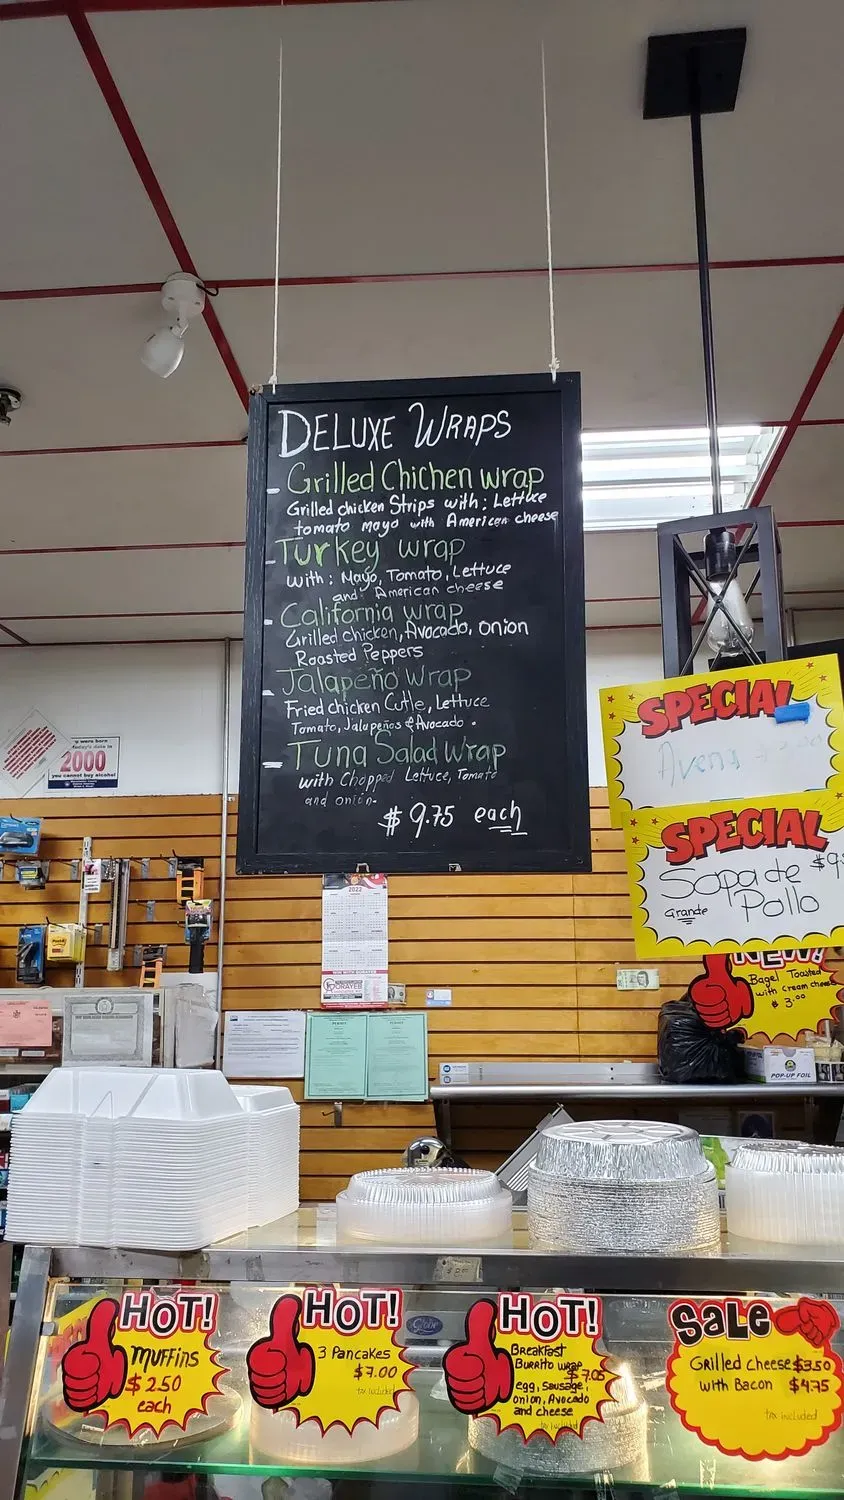 DELUXE WRAPS
Grilled Chichen wrap
Grilled chicken Strips with; Lettuce
tomato mayo with American cheese
Turkey wrap
with: Mayo, Tomato, Lettuce
and American cheese
California wrap
Grilled chicken, Avocado, onion
Roasted Peppers
Jalapeño wrap
Fried chicken Cutle, Lettuce
Tomato, Jalapeños & Avocado.
Tuna Salad wrap
with Chopped Lettuce, Tomato
and onion.
$ 9.75 each
2000
you cannot buy alcohol
SPECIAL
Avena
SPECIAL
Sopa de $9
Grande Pollo
NEW!
Bagel Toasted
with cream cheese
$ 3.00
2022
PERMIT
PERMIT
POP-UP FOIL
HOT!
MUFFINS
$ 2.50
each
HOT!
3 Pancakes
$7.00
tax included
HOT!
Breakfast
Burrito wrap
$7.05
egg, Sausage,
onion, Avocado
and cheese
tax included
SALE
GRilled cheese $3.50
with Bacon $4.75
tax included